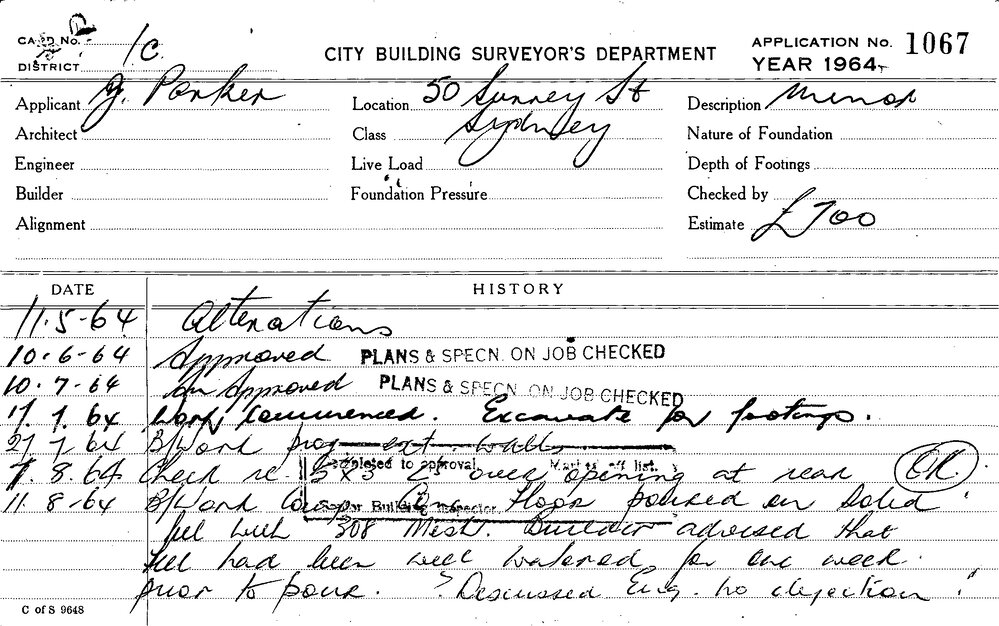 CARD No. 1C. CITY BUILDING SURVEYOR'S DEPARTMENT APPLICATION No. 1067
DISTRICT YEAR 1964
Applicant G. Parker Location 50 Surrey St Description Minor
Architect Class Sydney Nature of Foundation
Engineer Live Load Depth of Footings
Builder Foundation Pressure Checked by
Alignment Estimate £700
DATE HISTORY
11.5-64 Alterations
10.6-64 Approved PLANS & SPECN. ON JOB CHECKED
10.7-64 Approved PLANS & SPECN. ON JOB CHECKED
17.7.64 Work Commenced. Excavate for footings.
27.7.64 B/Work prog ext. walls
7.8.64 Check re. 3x3 over opening at rear OK.
Completed to approval. Marked off list.
11.8-64 B/Work Comp. Floor poured on solid
Senior Building Inspector.
fill with 308 Mesh. Builder advised that
fill had been well watered for one week
prior to pour. Discussed Eng. no objection
C of S 9648